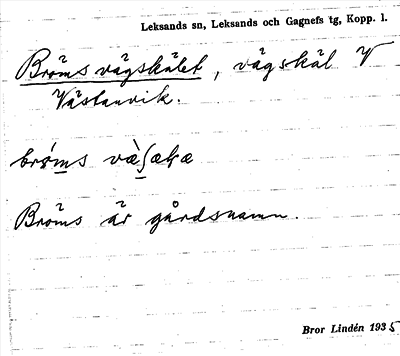 Leksands sn, Leksands och Gagnefs tg, Kopp. l.
Bröms vägskälet, vägskäl V
Västanvik.
brö́ms væ̀ʃæɫæ
Bröms är gårdsnamn.
Bror Lindén 1935